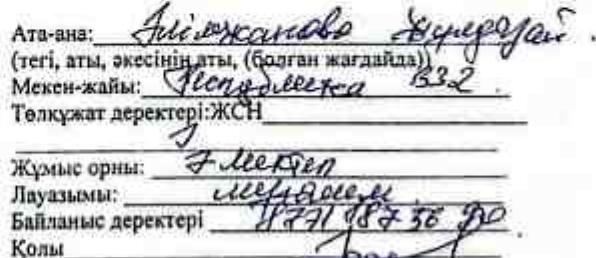 Ата-ана: Әлімжанова
(тегі, аты, әкесінің аты, (болған жағдайда))
Мекен-жайы: Республика 132
Төлқұжат деректері:ЖСН
Жұмыс орны: 7 мектеп
Лауазымы:
Байланыс деректері 8771 187 36
Қолы